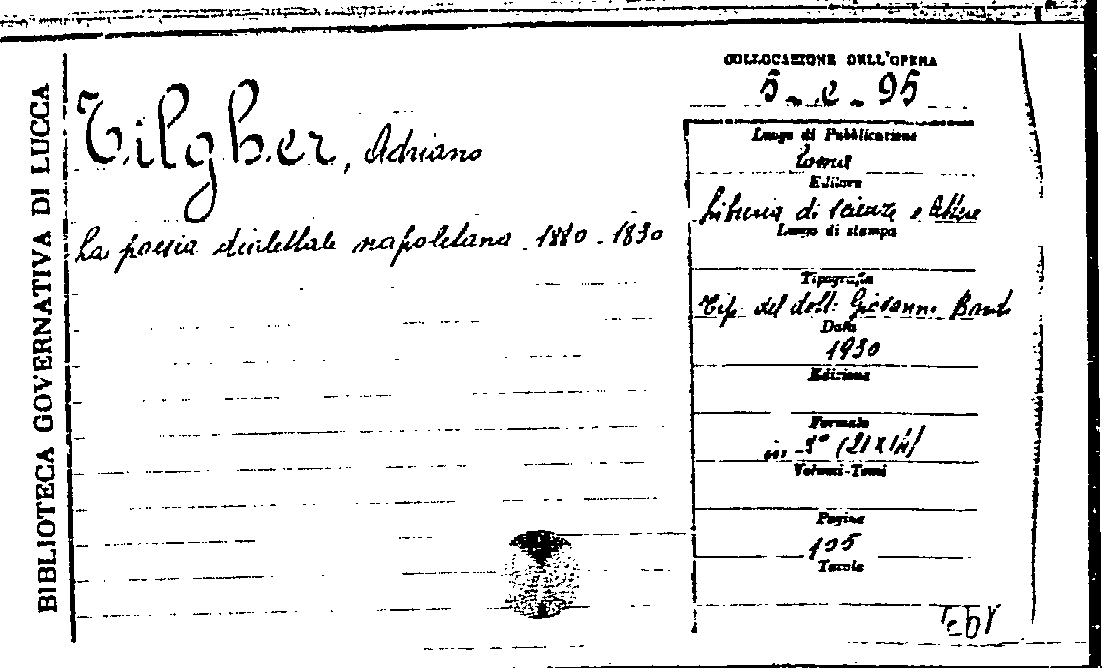 BIBLIOTECA GOVERNATIVA DI LUCCA
COLLOCAZIONE DELL'OPERA
5 - e - 95
Tilgher, Adriano
La poesia dialettale napoletana 1880-1930
Luogo di Pubblicazione
Roma
Editore
Libreria di Scienze e Lettere
Luogo di stampa
Tipografia
Tip. del dott. Giovanni Bardi
Data
1930
Edizione
Formato
in-8° (21x14)
Volumi-Tomi
Pagine
105
Tavole